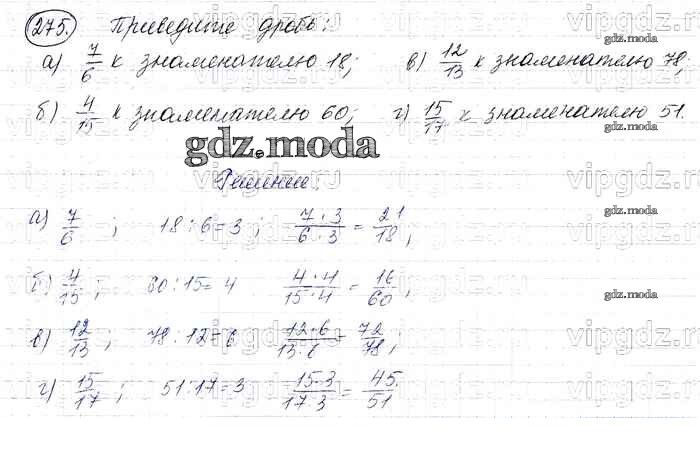 275. Приведите дробь:
а) 7/6 к знаменателю 18; в) 12/13 к знаменателю 78;
б) 4/15 к знаменателю 60; г) 15/17 к знаменателю 51.
gdz.moda
Решение:
а) 7/6 ; 18:6=3 ; 7·3/6·3 = 21/18 ;
б) 4/15 ; 60:15=4 4·4/15·4 = 16/60 ;
в) 12/13 ; 78:12=6 12·6/13·6 = 72/78 ;
г) 15/17 ; 51:17=3 15·3/17·3 = 45/51.